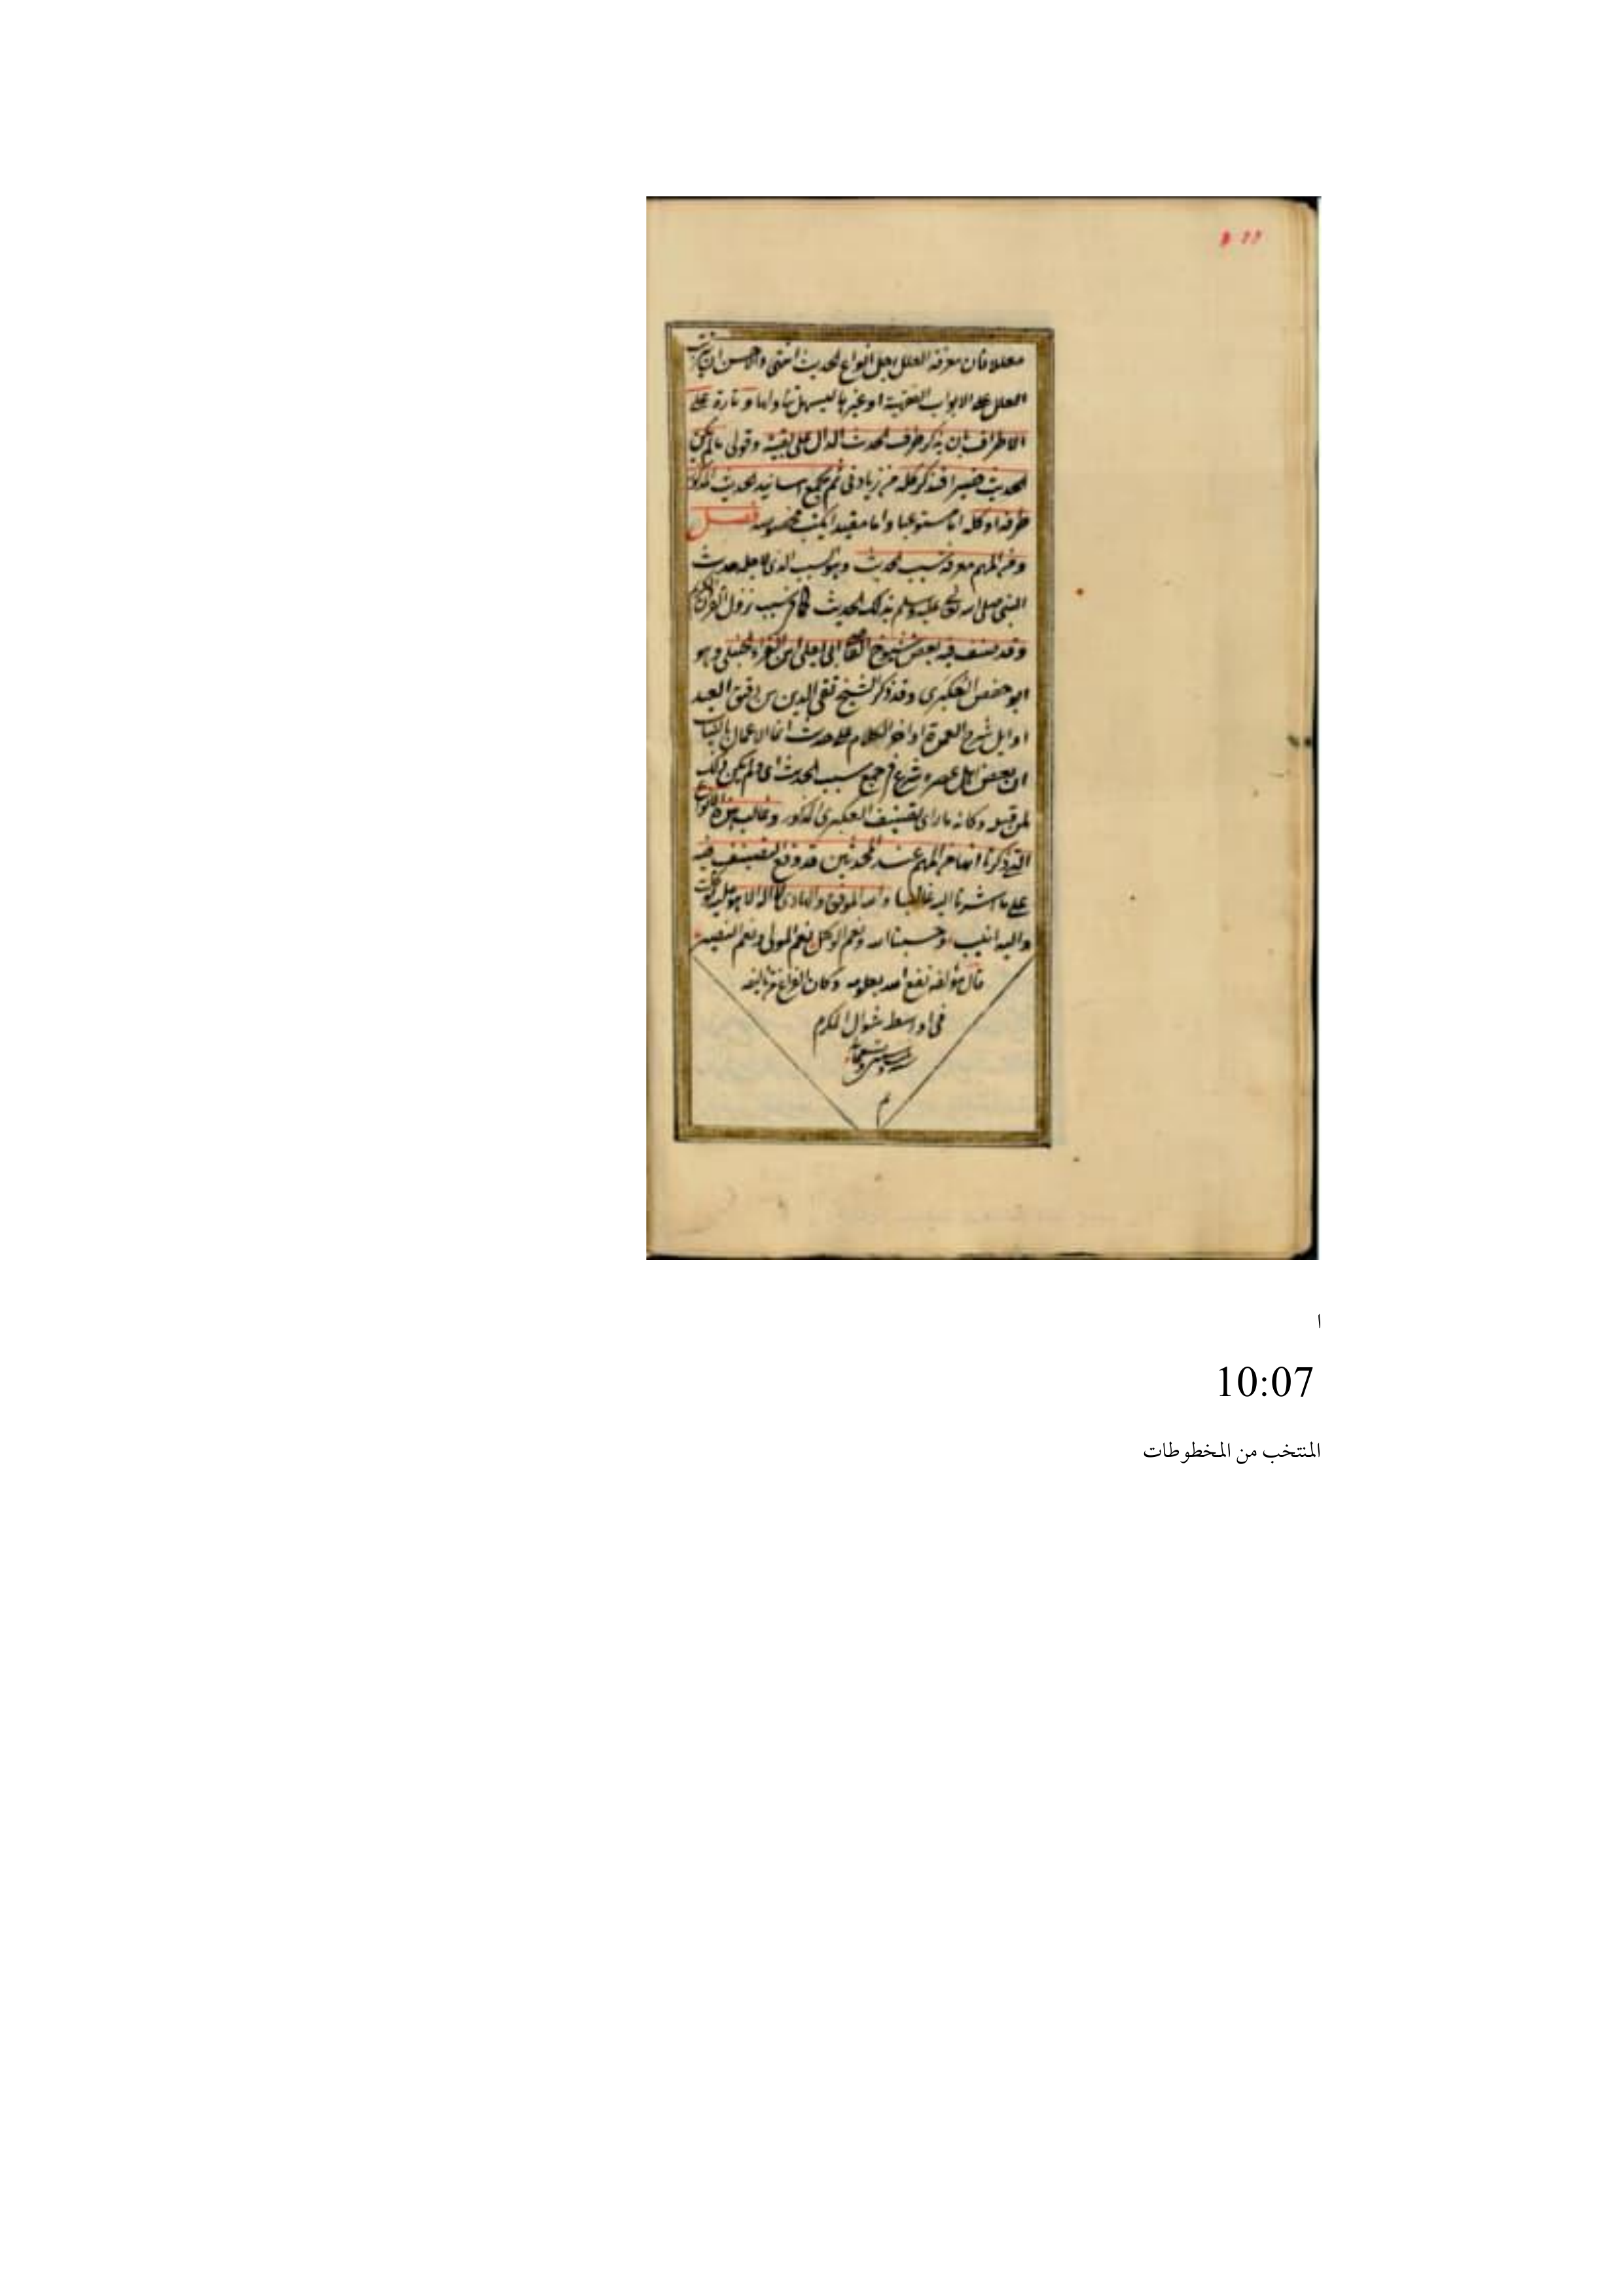 معللا فان معرفة العلل اجل انواع الحديث انتهى والاحسن ان
العلل على الابواب الفقهية او غيرها ليسهل تناولها و تارة على
الاطراف بان يذكر طرف الحديث الدال على بقيته وقولى مالم يكن
الحديث قصيرا فيذكر كله من زيادتى ثم يجمع اسانيد الحديث المذكور
طرفه او كله اما مستوعبا واما مقيدا بكتب مخصوصه فصل
ومن المهم معرفة سبب الحديث وهو السبب الذى لاجله حدث
النبى صلى الله تعالى عليه وسلم بذلك الحديث كما فى سبب نزول القرآن الكريم
وقد صنف فيه بعض شيوخ القاضى ابى يعلى ابن الفراء الحنبلى وهو
ابو حفص العكبرى وقد ذكر الشيخ تقى الدين بن دقيق العيد
اوايل شرح العمدة اواخر الكلام على حديث انما الاعمال بالنيات
ان بعض اهل عصره شرع فى جمع سبب الحديث اى ولم يكن ذلك
لمن قبله وكانه ما راى تصنيف العكبرى المذكور وغالب هذه الانواع
التى ذكرنا انها من المهم عند المحدثين قد وقع التصنيف فيه
على ما اشرنا اليه غالبا والله الموفق والهادى لا اله الا هو عليه توكلت
واليه انيب وحسبنا الله ونعم الوكيل نعم المولى ونعم النصير
قال مؤلفه نفع الله بعلومه وكان الفراغ من تاليفه
فى اواسط شوال المكرم
م
ا
10:07
المنتخب من المخطوطات